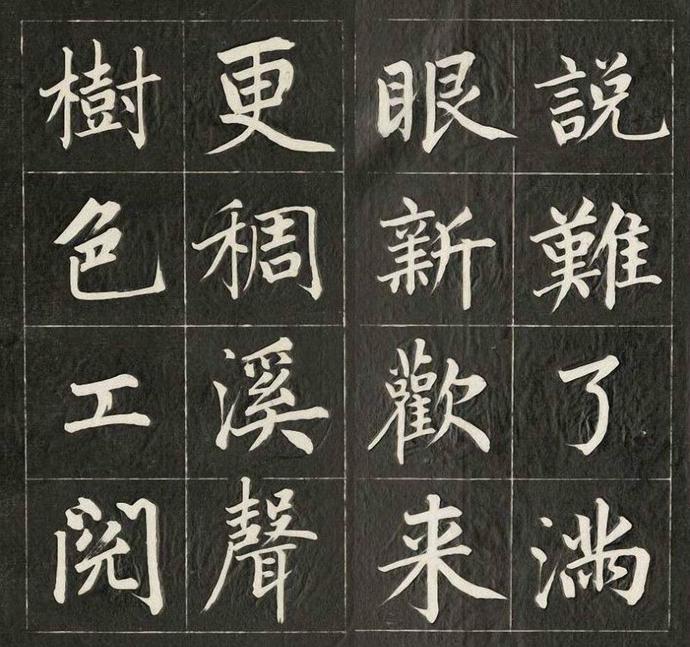 説難了满
眼新歡来
更稠溪聲
樹色工閲